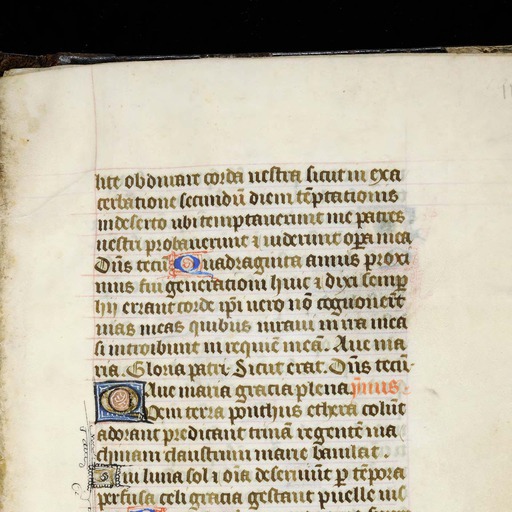 lite obdurare corda uestra sicut in exa
cerbatione secundū diem tēptationis
in deserto ubi temptauerunt me patres
uestri probauerunt ⁊ uiderunt oꝑa mea
Dn̄s tecū Quadraginta annis proxi
mus fui generationi huic ⁊ dixi semꝑ
hii errant corde ip̄i uero nō cognouerūt
uias meas quibus iuraui in ira mea
si introibunt in requiē meā. Aue ma
ria. Gloria patri Sicut erat. Dn̄s tecū.
Aue maria gracia plena ymnus.
Quem terra ponthus ethera colūt
adorant predicant trinā regentē ma
chinam claustrum marie baiulat.
Cui luna sol ⁊ oīa deseruiūt ꝑ tēpora
perfusa celi gracia gestant puelle uis